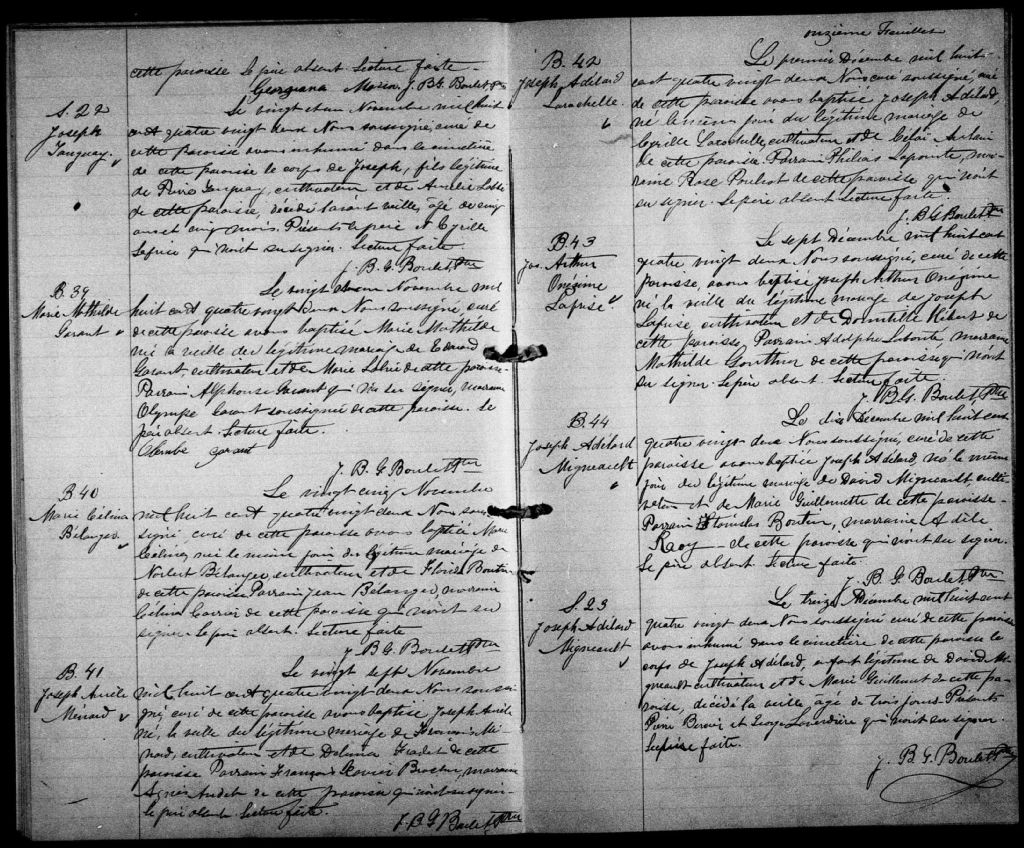 cette paroisse le père absent. Lecture faite
Georgiana Morin J. B. G. Boulet Ptre
S. 22
Joseph
Tanguay.
Le vingt et un Novembre mil huit
cent quatre vingt deux Nous soussigné, curé de
cette paroisse avons inhumé dans le cimetière
de cette paroisse le corps de Joseph, fils légitime
de Pierre Tanguay, cultivateur et de Aurélie
de cette paroisse, décédé l'avant veille, agé de cinq
ans et cinq mois. Présents le père et Cyrille
Lafrise qui n'ont su signer. Lecture faite
J. B. G. Boulet, Ptre
B. 39
Marie Mathilde
Garant
Le vingt Novembre mil
huit cent quatre vingt deux Nous soussigné curé
de cette paroisse avons baptisé Marie Mathilde
née la veille du légitime mariage de Edouard
Garant cultivateur et de Marie de cette paroisse
Parrain Alphonse Garant qui n'a su signer, marraine
Olympe Garant soussignée de cette paroisse. Le
père absent. Lecture faite.
Garant
J. B. G. Boulet Ptre
B. 40
Marie Célina
Bélanger
Le vingt cinq Novembre
mil huit cent quatre vingt deux Nous sous
signé curé de cette paroisse avons baptisé Marie
Célina, née le même jour du légitime mariage de
Norbert Bélanger, cultivateur et de Boutin
de cette paroisse Parrain Jean Bélanger, marraine
Célina de cette paroisse qui n'ont su
signer le père absent. Lecture faite
J. B. G. Boulet Ptre
B. 41
Joseph Aurèle
Ménard
Le vingt sept Novembre
mil huit cent quatre vingt deux Nous soussi
gné, curé de cette paroisse avons baptisé Joseph Aurèle
né, la veille du légitime mariage de François Mé
nard, cultivateur et de Fradet de cette
paroisse Parrain François Xavier marraine
Audet de cette paroisse qui n'ont su signer
le père absent Lecture faite.
J. B. G. Boulet, Ptre
onzième Feuillet
B. 42
Joseph Adélard
Larochelle
Le premier Décembre mil huit
cent quatre vingt deux Nous curé soussigné, curé
de cette paroisse avons baptisé Joseph Adélard,
né le même jour du légitime mariage de
Cyrille Larochelle, cultivateur et de
de cette paroisse. Parrain Philias Lapointe, mar
raine Rose Pouliot de cette paroisse qui n'ont
su signer. Le père absent Lecture faite.
J. B. G. Boulet Ptre
B. 43
Jos. Arthur
Onézime
Lafrise
Le sept Décembre mil huit cent
quatre vingt deux Nous soussigné, curé de cette
paroisse, avons baptisé Joseph Arthur Onézime
né la veille du légitime mariage de Joseph
Lafrise cultivateur et de Domitille
cette paroisse, Parrain Adolphe marraine
Mathilde Gonthier de cette paroisse qui n'ont
su signer. Le père absent. Lecture faite
J. B. G. Boulet, Ptre
B. 44
Joseph Adélard
Migneault
Le dix Décembre mil huit cent
quatre vingt deux Nous soussigné, curé de cette
paroisse avons baptisé Joseph Adélard, né le même
jour du légitime mariage de David Migneault culti
vateur et de Marie Guillemette de cette paroisse.
Parrain Stanislas Boutin, marraine Adèle
Roy de cette paroisse qui n'ont su signer.
Le père absent Lecture faite.
J. B. G. Boulet Ptre
S. 23
Joseph Adélard
Migneault
Le treize Décembre mil huit cent
quatre vingt deux Nous soussigné curé de cette paroisse
avons inhumé dans le cimetière de cette paroisse le
corps de Joseph Adélard, enfant légitime de David Mi
gneault cultivateur et de Marie Guillemet de cette pa
roisse, décédé la veille âgé de trois jours. Présents
Pierre et George qui n'ont su signer.
Lecture faite.
J. B. G. Boulet Ptre